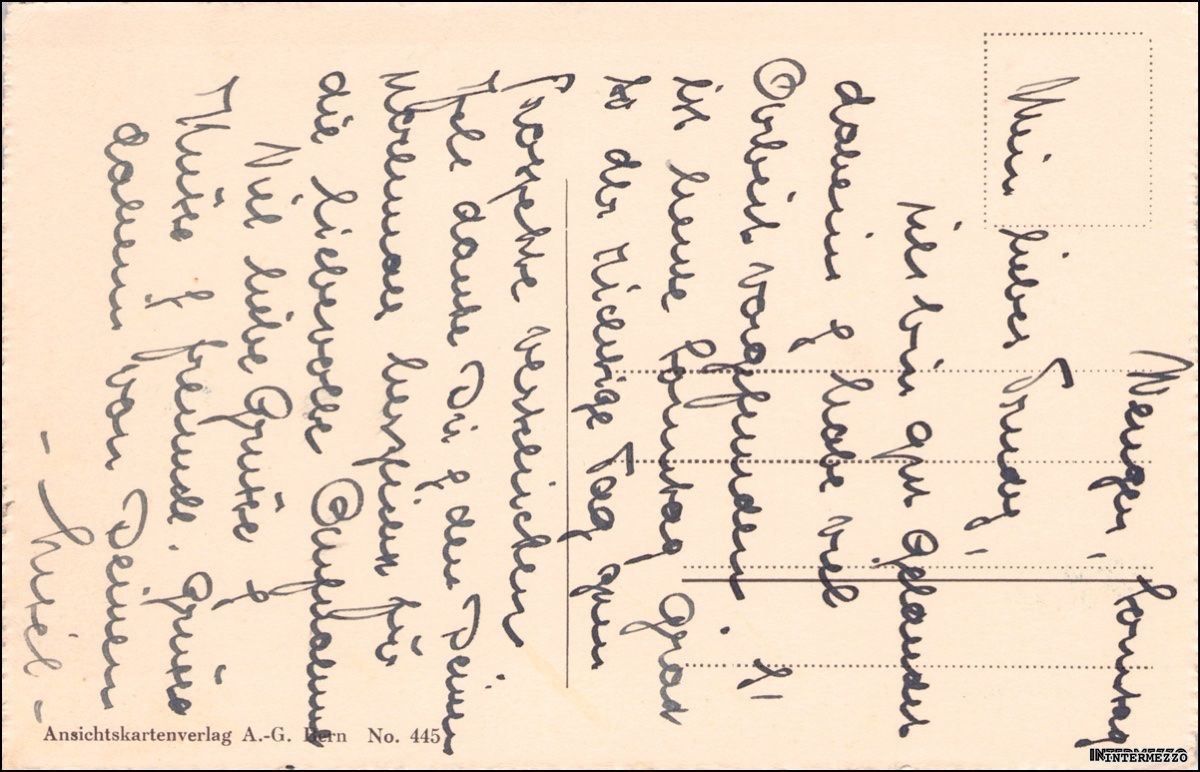 Wengen, Sonntag
Mein lieber Trudy!
Ich bin gut gelandet
daheim & habe viel
Arbeit vorgefunden. &
ist heute Sonntag grad
so der richtige Tag zum
Prospekte verschicken
Ich danke Dir & den Deinen
nochmals herzlich für
die liebevolle Aufnahme
Viel liebe Grüsse &
Müntschi & Freunde. Grüsse
daheim von Deinem
Ansichtskartenverlag A.-G. Bern No. 445
INTERMEZZO